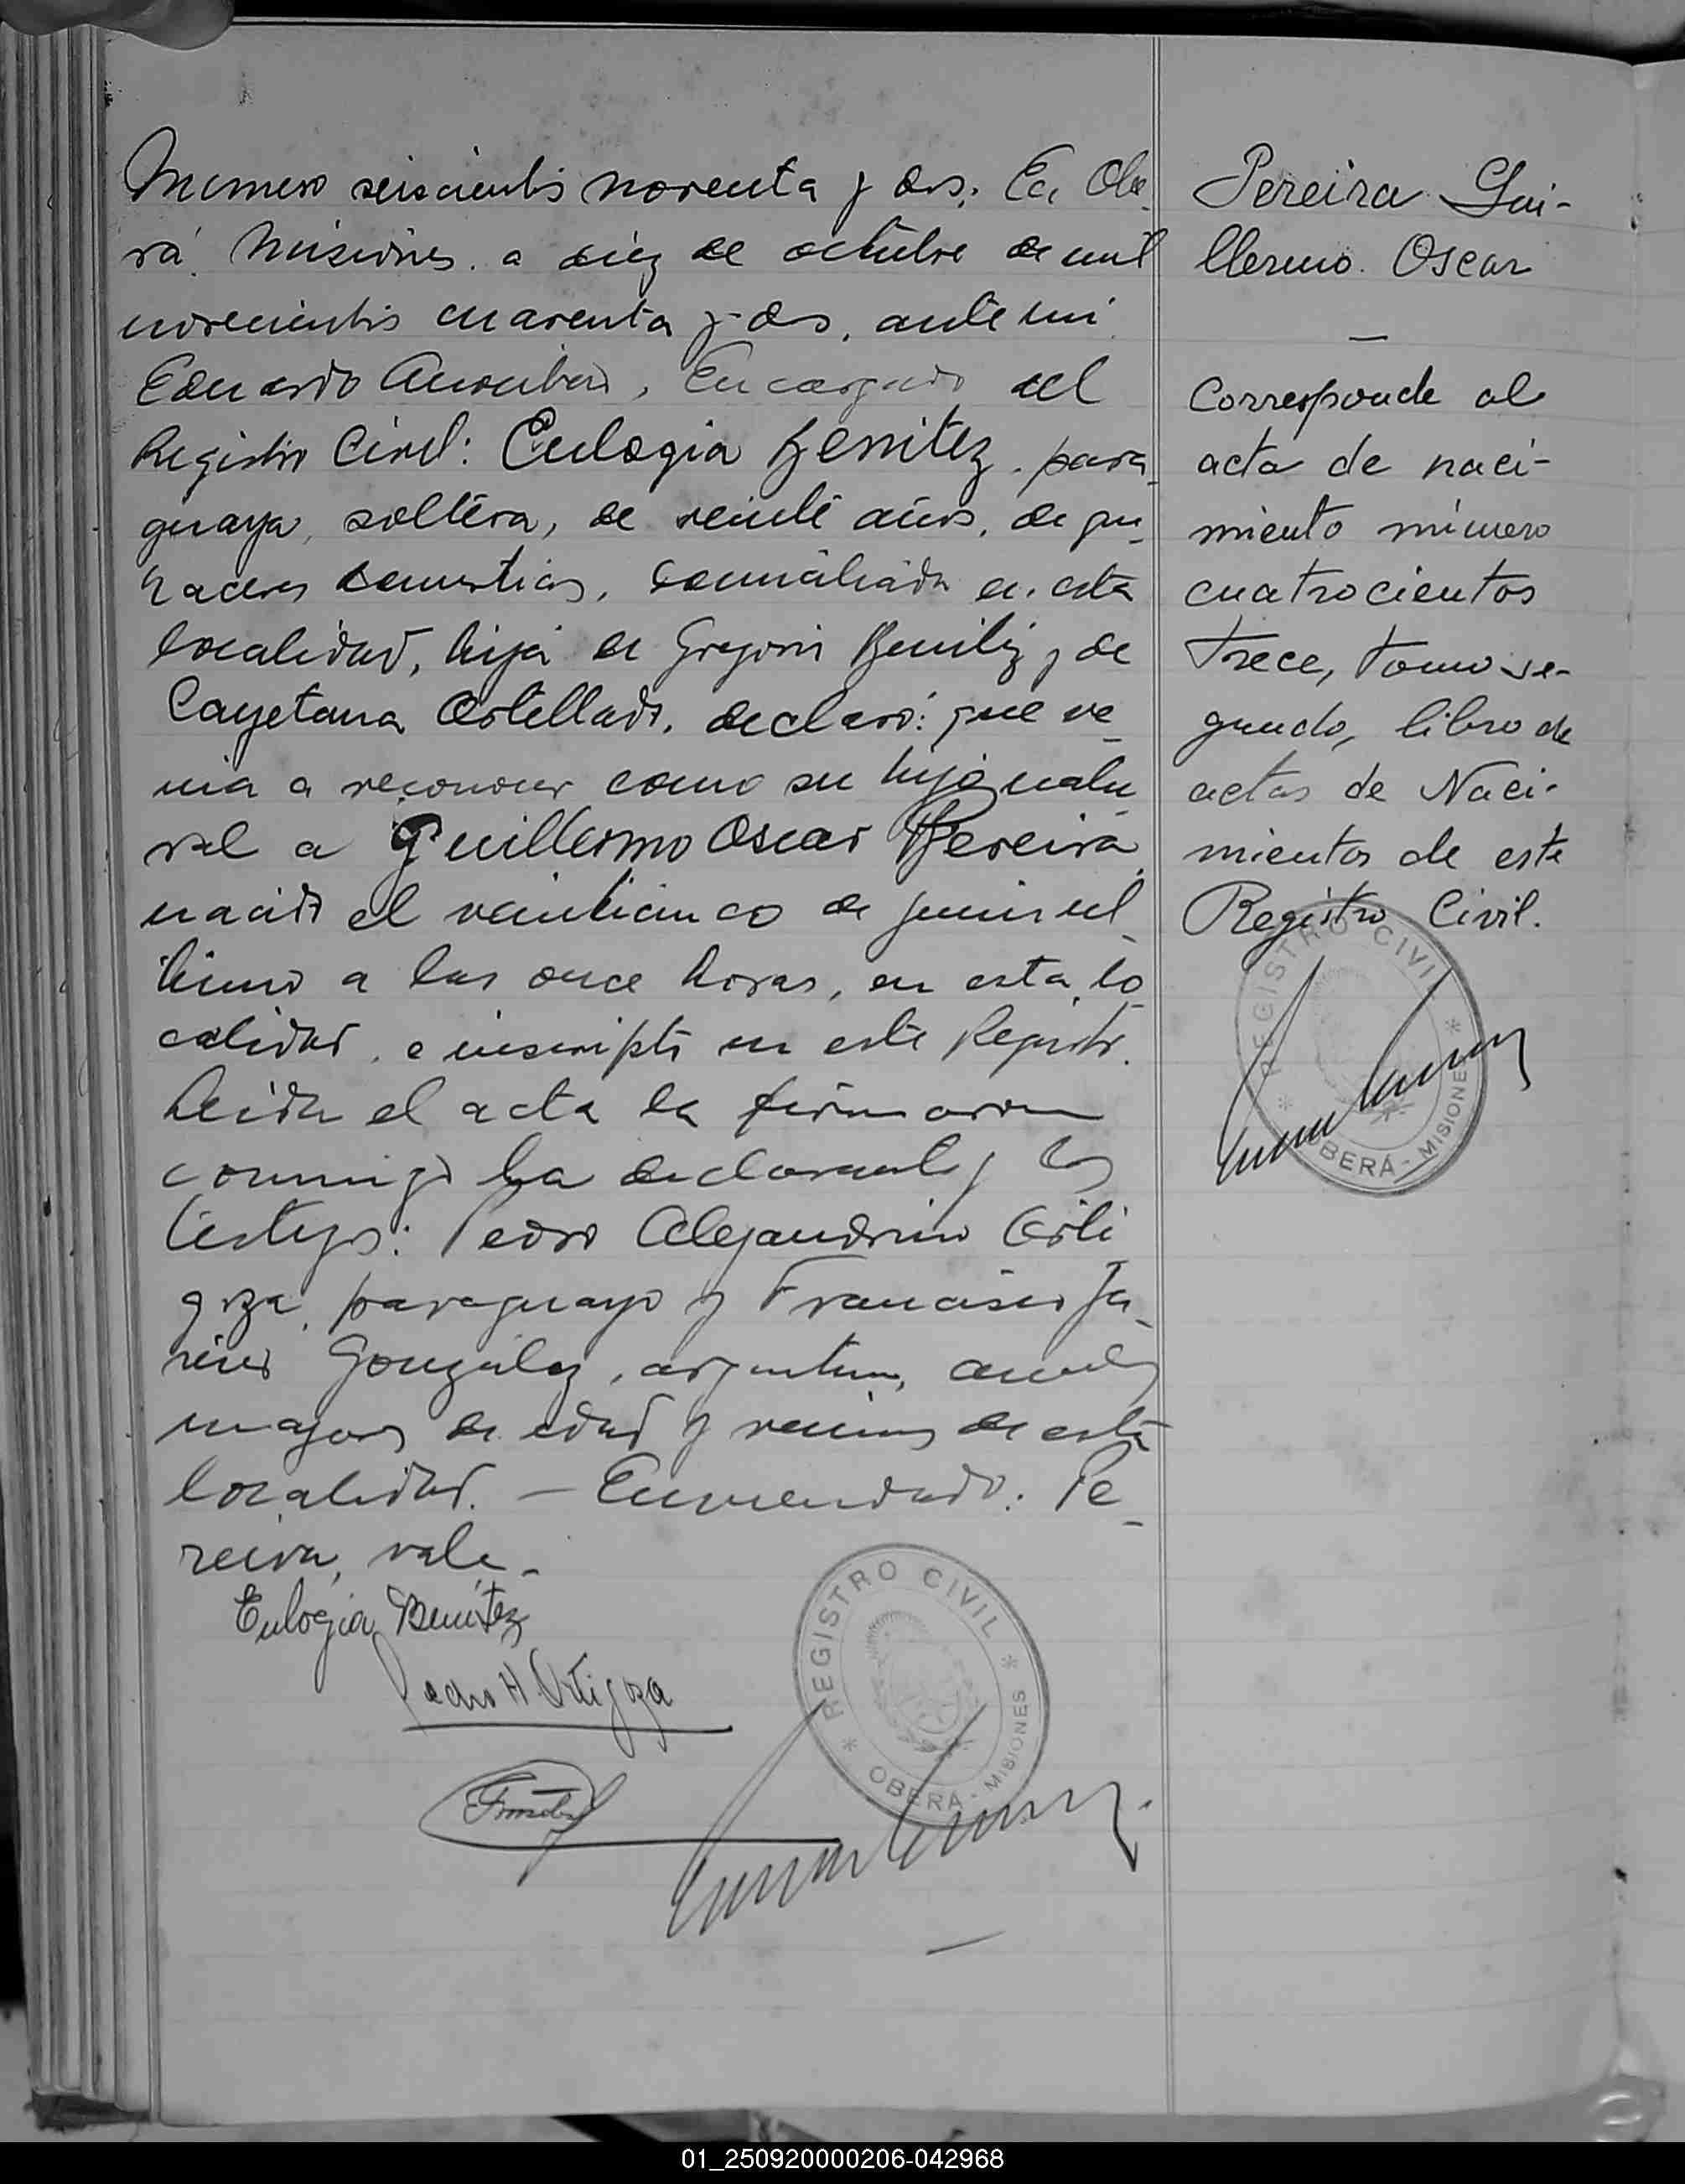 Número seiscientos noventa y dos. En Obe-
rá. Misiones. a diez de octubre de mil
novecientos cuarenta y dos, ante mi
Eduardo Encargado del
Registro Civil: Eulogia Benitez. para-
guaya, soltera, de veinte años, de que-
haceres domesticos, domiciliada en esta
localidad, hija de Gregorio Benitez y de
Cayetana declaró: que ve-
nia a reconocer como su hijo natu-
ral a Guillermo Oscar Pereira,
nacido el veinticinco de junio úl-
timo a las once horas, en esta lo-
calidad, e inscripto en este Registro.
Leida el acta la firmaron
conmigo la declarante y los
testigos: Pedro Alejandrino Orti-
goza, paraguayo y Francisco Ja-
vier González, argentino, ambos
mayores de edad y vecinos de esta
localidad. — Enmendado: Pe-
reira, vale.-
Eulogia Benitez
Pedro A. Ortigoza
REGISTRO CIVIL
* OBERÁ - MISIONES *
Pereira Gui-
llermo. Oscar
—
Corresponde al
acta de naci-
miento número
cuatrocientos
trece, tomo se-
gundo, libro de
actas de Naci-
mientos de este
Registro Civil.
REGISTRO CIVIL
* OBERÁ - MISIONES *
01_250920000206-042968